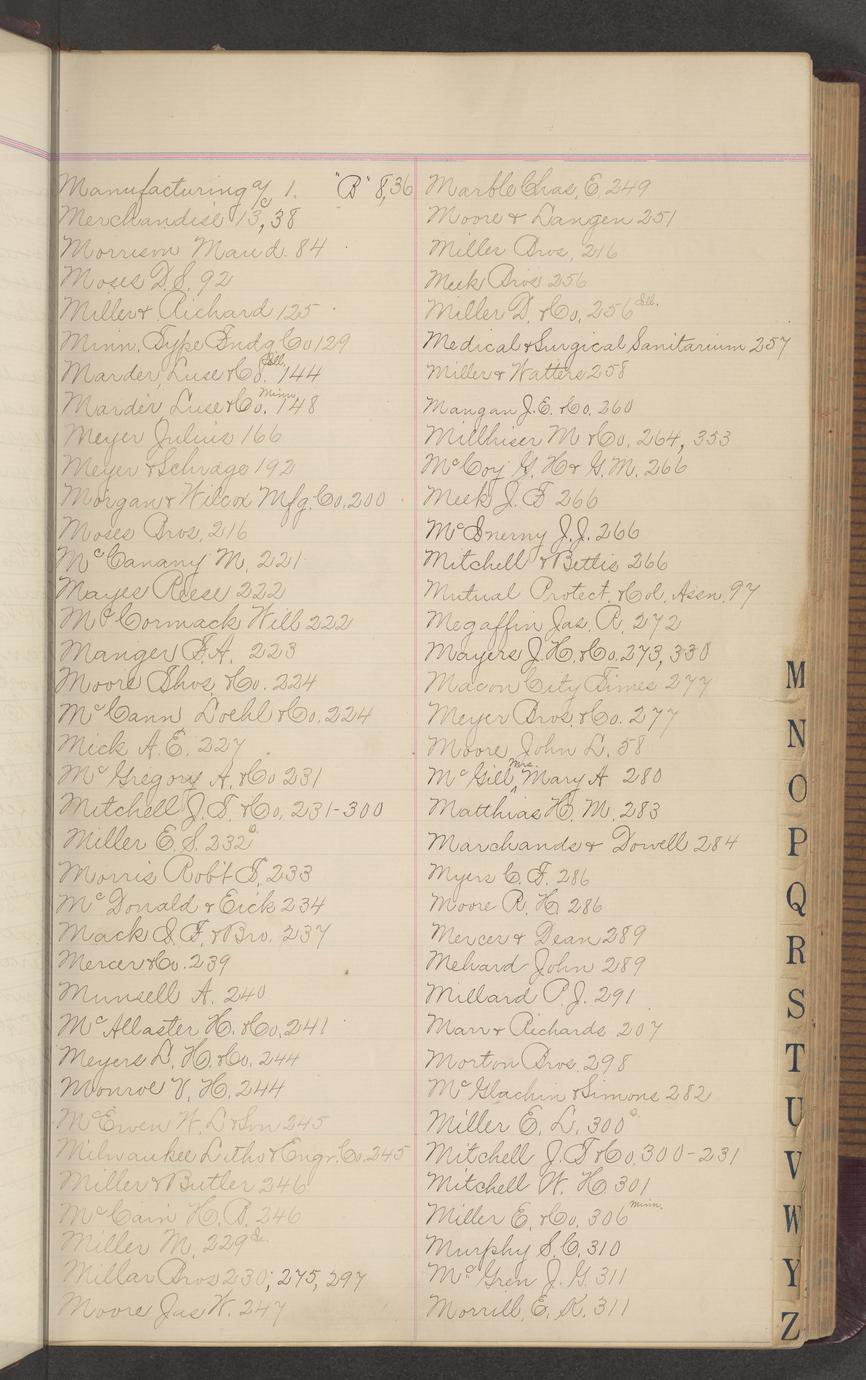 Manufacturing a/c 1. "B" 8,36
Merchandise 13, 38
Morrison Maud. 84
Moses D. S. 92
Miller & Richard 125
Minn. Type Fndg Co 129
Marder Luse & Co. Ill. 144
Marder Luse & Co. Minn. 148
Meyer Julius 166
Meyer & Schrage 192
Morgan & Wilcox Mfg. Co. 200
Moses Bros, 216
McCanany M. 221
Mayes Reese 222
McCormack Will 222
Manger F. A. 223
Moore Thos. & Co. 224
McCann Loehl & Co. 224
Mick A. E. 227
McGregory A. & Co 231
Mitchell J. T. & Co, 231-300
Miller E. S. 232 o.
Morris Rob't T, 233
McDonald & Eick 234
Mack S. F. & Bro. 237
Mercer & Co. 239
Munsell A. 240
McAllaster H. & Co, 241
Meyers L. H. & Co. 244
Monroe V. H. 244
McEwen W. L & Son 245
Milwaukee Litho & Engr. Co. 245
Miller & Butler 246
McCain H. B. 246
Miller M. 229
Millar Bros 230, 275, 297
Moore Jas W. 247
Marble Chas, E. 249
Moore & Langen 251
Miller Bros, 216
Meek Bros 256
Miller D. & Co, 256 Ill.
Medical & Surgical Sanitarium 257
Miller & Watters 258
Mangan J. E. & Co. 260
Millhiser M & Co. 264, 353
McCoy G. H & G. M. 266
Meek J. F 266
McInerny J. J. 266
Mitchell & Bettis 266
Mutual Protect. & Col. Assn. 97
Megaffin Jas. R. 272
Mayers J. H. & Co. 273, 330
Macon City Times 277
Meyer Bros. & Co. 277
Moore John L. 58
McGill, Mrs. Mary A 280
Matthias H. M. 283
Marchands & Dowell 284
Myers C. F. 286
Moore R. H. 286
Mercer & Dean 289
Mehard John 289
Millard P. J. 291
Marr & Richards 207
Morton Bros. 298
McGlachin & Simons 282
Miller E. L. 300 o
Mitchell J. T & Co, 300-231
Mitchell W. H. 301
Miller E. & Co. 306 Minn.
Murphy S. C. 310
McGren J. G. 311
Morrill, E. K. 311
M
N
O
P
Q
R
S
T
U
V
W
Y
Z